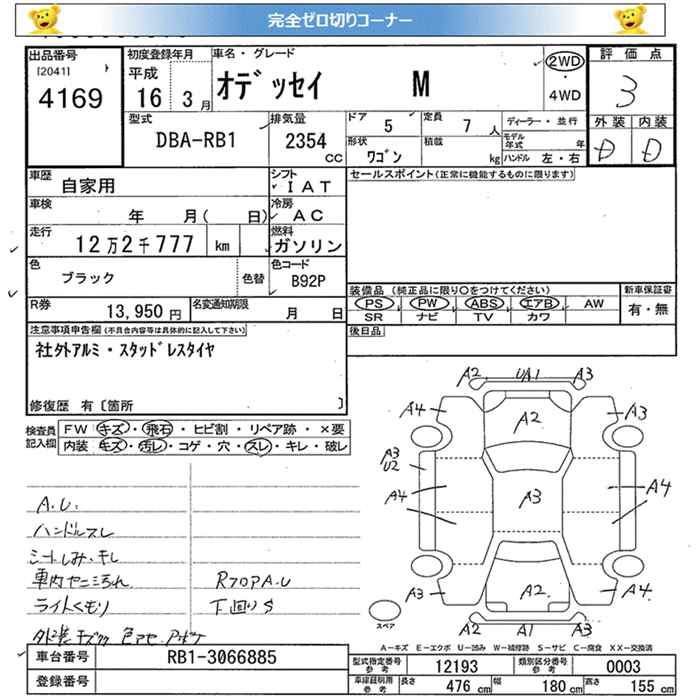 完全ゼロ切りコーナー
出品番号 初度登録年月 車名・グレード 評価点
[2041] 平成 オデッセイ M 2WD
4169 16 3月 4WD 3
型式 排気量 ドア 5 定員 7人 ディーラー・並行 外装 内装
DBA-RB1 2354 CC 形状 ワゴン 積載 kg モデル年式 年 D D
ハンドル 左・右
車歴 自家用 シフト IAT セールスポイント(正常に機能するものに限ります)
車検 年 月( 日) 冷房 AC
走行 12万2千777 km 燃料 ガソリン
色 ブラック 色替 色コード B92P
装備品 (純正品に限り○をつけてください) 新車保証書
PS PW ABS エアB AW 有・無
SR ナビ TV カワ
R券 13,950円 名変通知期限 月 日
後日品
注意事項申告欄(不具合内容等は具体的に記入して下さい)
社外アルミ・スタッドレスタイヤ
修復歴 有〔箇所 〕
検査員記入欄 FW キズ・飛石・ヒビ割・リペア跡・×要
内装 キズ・汚レ・コゲ・穴・スレ・キレ・破レ
A2 UA1 A3
A4 A2 A3
A3
U2
A4 A3 A4
A3 A2 A4
A2 A1 A3
スペア
A.U.
ハンドルスレ
シートしみ・キレ
車内ヤニ汚れ RフロアA.U
ライトくもり 下回りS
A－キズ E－エクボ U－凹み W－補修跡 S－サビ C－腐食 XX－交換済
車台番号 RB1-3066885 型式指定番号 参考 12193 類別区分番号 参考 0003
登録番号 車庫証明用 参考 長さ 476cm 幅 180cm 高さ 155cm